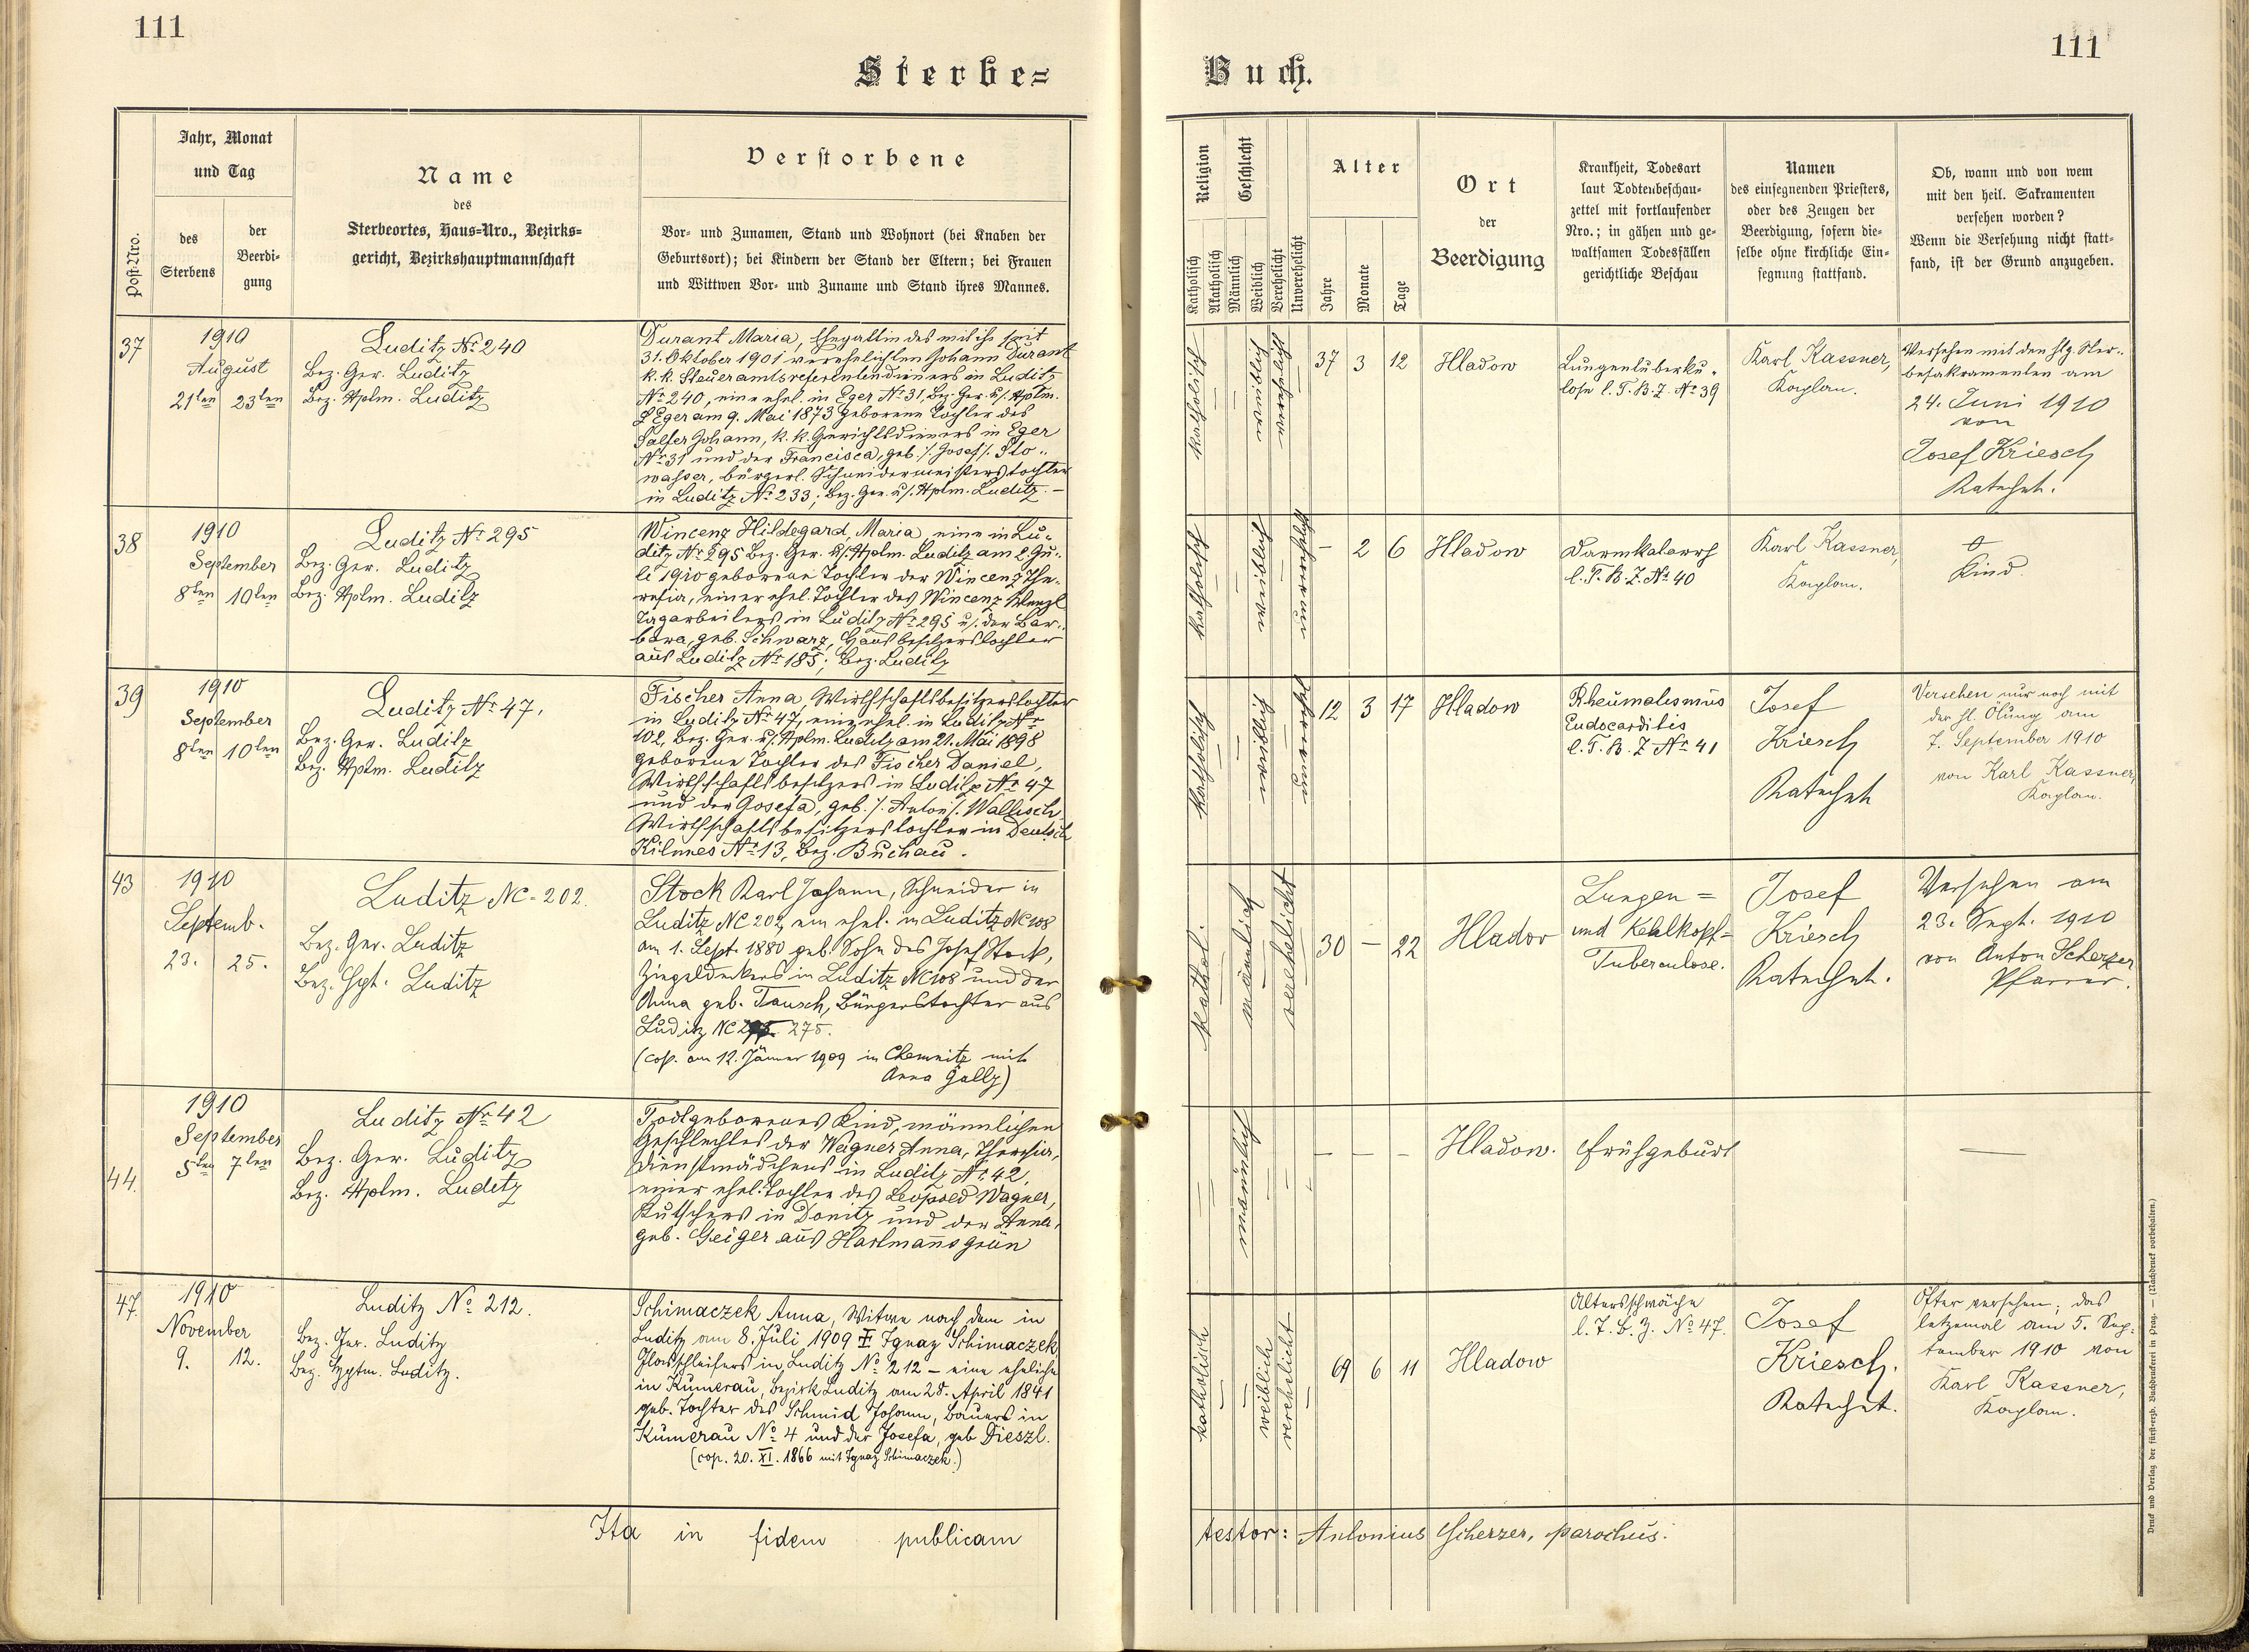 111
111
Sterbe=
Buch.
Post-Nro.
Jahr, Monat
und Tag
des
Sterbens
der
Beerdi-
gung
Name
des
Sterbeortes, Haus=Nro., Bezirks=
gericht, Bezirkshauptmannschaft
Verstorbene
Vor- und Zunamen, Stand und Wohnort (bei Knaben der
Geburtsort); bei Kindern der Stand der Eltern; bei Frauen
und Wittwen Vor- und Zuname und Stand ihres Mannes.
Religion
Katholisch
Akatholisch
Geschlecht
Männlich
Weiblich
Verehelicht
Unverehelicht
Alter
Jahre
Monate
Tage
Ort
der
Beerdigung
Krankheit, Todesart
laut Todtenbeschau-
zettel mit fortlaufender
Nro.; in gähen und ge-
waltsamen Todesfällen
gerichtliche Beschau
Namen
des einsegnenden Priesters,
oder des Zeugen der
Beerdigung, sofern die-
selbe ohne kirchliche Ein-
segnung stattfand.
Ob, wann und von wem
mit den heil. Sakramenten
versehen worden?
Wenn die Versehung nicht statt-
fand, ist der Grund anzugeben.
37
1910
August
21ten 23ten
Luditz No 240
Bez. Ger. Luditz
Bez. Hptm. Luditz
Durant Maria, Ehegattin des mit ihr seit
31. Oktober 1901 verehelichten Johann Durant
k.k. Steueramtsreferentendieners in Luditz
No 240, eine ehel. in Eger No 31, Bez. Ger. u. Hptm.
Eger am 9. Mai 1873 geborene Tochter des
Johann, k.k. Gerichtsdieners in Eger
No 31 und der Francisca, geb. /. Josef /. Sto-
wasser, bürgerl. Schneidermeisterstochter
in Luditz No 233; Bez. Ger. u. Hptm. Luditz. -
katholisch
weiblich
verehelicht
37 3 12
Hladow
Lungentuberku-
lose l. T. B. Z. No 39
Karl Kassner,
Kaplan.
Versehen mit den hlg. Ster-
besakramenten am
24. Juni 1910
von
Josef Kriesch
Katechet.
38
1910
September
8ten 10ten
Luditz Nr 295
Bez. Ger. Luditz
Bez. Hptm. Luditz
Wincenz Hildegard, Maria, eine in Lu-
ditz No 295 Bez. Ger. u. Hptm. Luditz am 2. Ju-
li 1910 geborene Tochter der Wincenz The-
resia, einer ehel. Tochter des Wincenz Wenzl
Tagarbeiters in Luditz No 295 u. der Bar-
bara, geb. Schwarz, Hausbesitzerstochter
aus Luditz Nr 185; Bez. Luditz
katholisch
weiblich
unverehelicht
- 2 6
Hladow
Darmkatarrh
l. T. B. Z. No 40
Karl Kassner,
Kaplan.
Kind.
39
1910
September
8ten 10ten
Luditz Nr 47.
Bez. Ger. Luditz
Bez. Hptm. Luditz
Fischer Anna, Wirthschaftsbesitzerstochter
in Luditz No 47, eine ehel. in Luditz Nr
102, Bez. Ger. u. Hptm. Luditz am 21. Mai 1898
geborene Tochter des Fischer Daniel,
Wirthschaftsbesitzers in Luditz No 47
und der Josefa, geb. /. Anton /. Wallisch
Wirthschaftsbesitzerstochter in Deutsch
Kilmes No 13, Bez. Buchau.
katholisch
weiblich
unverehel.
12 3 17
Hladow
Rheumatismus
Endocarditis
l. T. B. Z No 41
Josef
Kriesch
Katechet
Versehen nur noch mit
der hl. Ölung am
7. September 1910
von Karl Kassner,
Kaplan.
43
1910
Septemb.
23. 25.
Luditz NC. 202.
Bez. Ger. Luditz
Bez. Hpt. Luditz
Stock Karl Johann, Schneider in
Luditz NC 202, ein ehel. in Luditz NC 108
am 1. Sept. 1880 geb. Sohn des Josef Stock,
Ziegeldeckers in Luditz NC 108 und der
Anna geb. Tausch, Bürgerstochter aus
Luditz NC 275.
(cop. am 12. Jänner 1909 in Chemnitz mit
Anna Gally)
kathol.
männlich
verehelicht
30 - 22
Hladov
Lungen=
und Kehlkopf=
Tuberculose.
Josef
Kriesch
Katechet.
Versehen am
23. Sept. 1910
von Anton Scherzer
Pfarrer.
44.
1910
September
5ten 7ten
Luditz Nr 42
Bez. Ger. Luditz
Bez. Hptm. Luditz
Todtgeborenes Kind, männlichen
Geschlechtes der Wagner Anna, Theresia,
Dienstmädchens in Luditz No 42,
einer ehel. Tochter des Leopold Wagner,
Kutschers in Donitz und der Anna,
geb. Geiger aus Hartmannsgrün
männlich
- - -
Hladow.
Frühgeburt
47.
1910
November
9. 12.
Luditz No 212.
Bez. Ger. Luditz
Bez. Hptm. Luditz.
Schimaczek Anna, Witwe nach dem in
Luditz am 8. Juli 1909 † Ignaz Schimaczek
Glasschleifers in Luditz No 212 - eine eheliche
in Kumerau, Bezirk Luditz am 28. April 1841
geb. Tochter des Schmid Johann, Bauers in
Kumerau No 4 und der Josefa, geb Dieszl.
(cop. 20. XI. 1866 mit Ignaz Schimaczek.)
katholisch
weiblich
verehelicht
69 6 11
Hladow
Altersschwäche
l. T. b. Z. No 47.
Josef
Kriesch.
Katechet.
Öfter versehen; das
letzemal am 5. Sep-
tember 1910 von
Karl Kassner,
Kaplan.
Ita in fidem publicam
testor: Antonius Scherzer, parochus.
Druck und Verlag der fürst-erzb. Buchdruckerei in Prag. — (Nachdruck vorbehalten.)